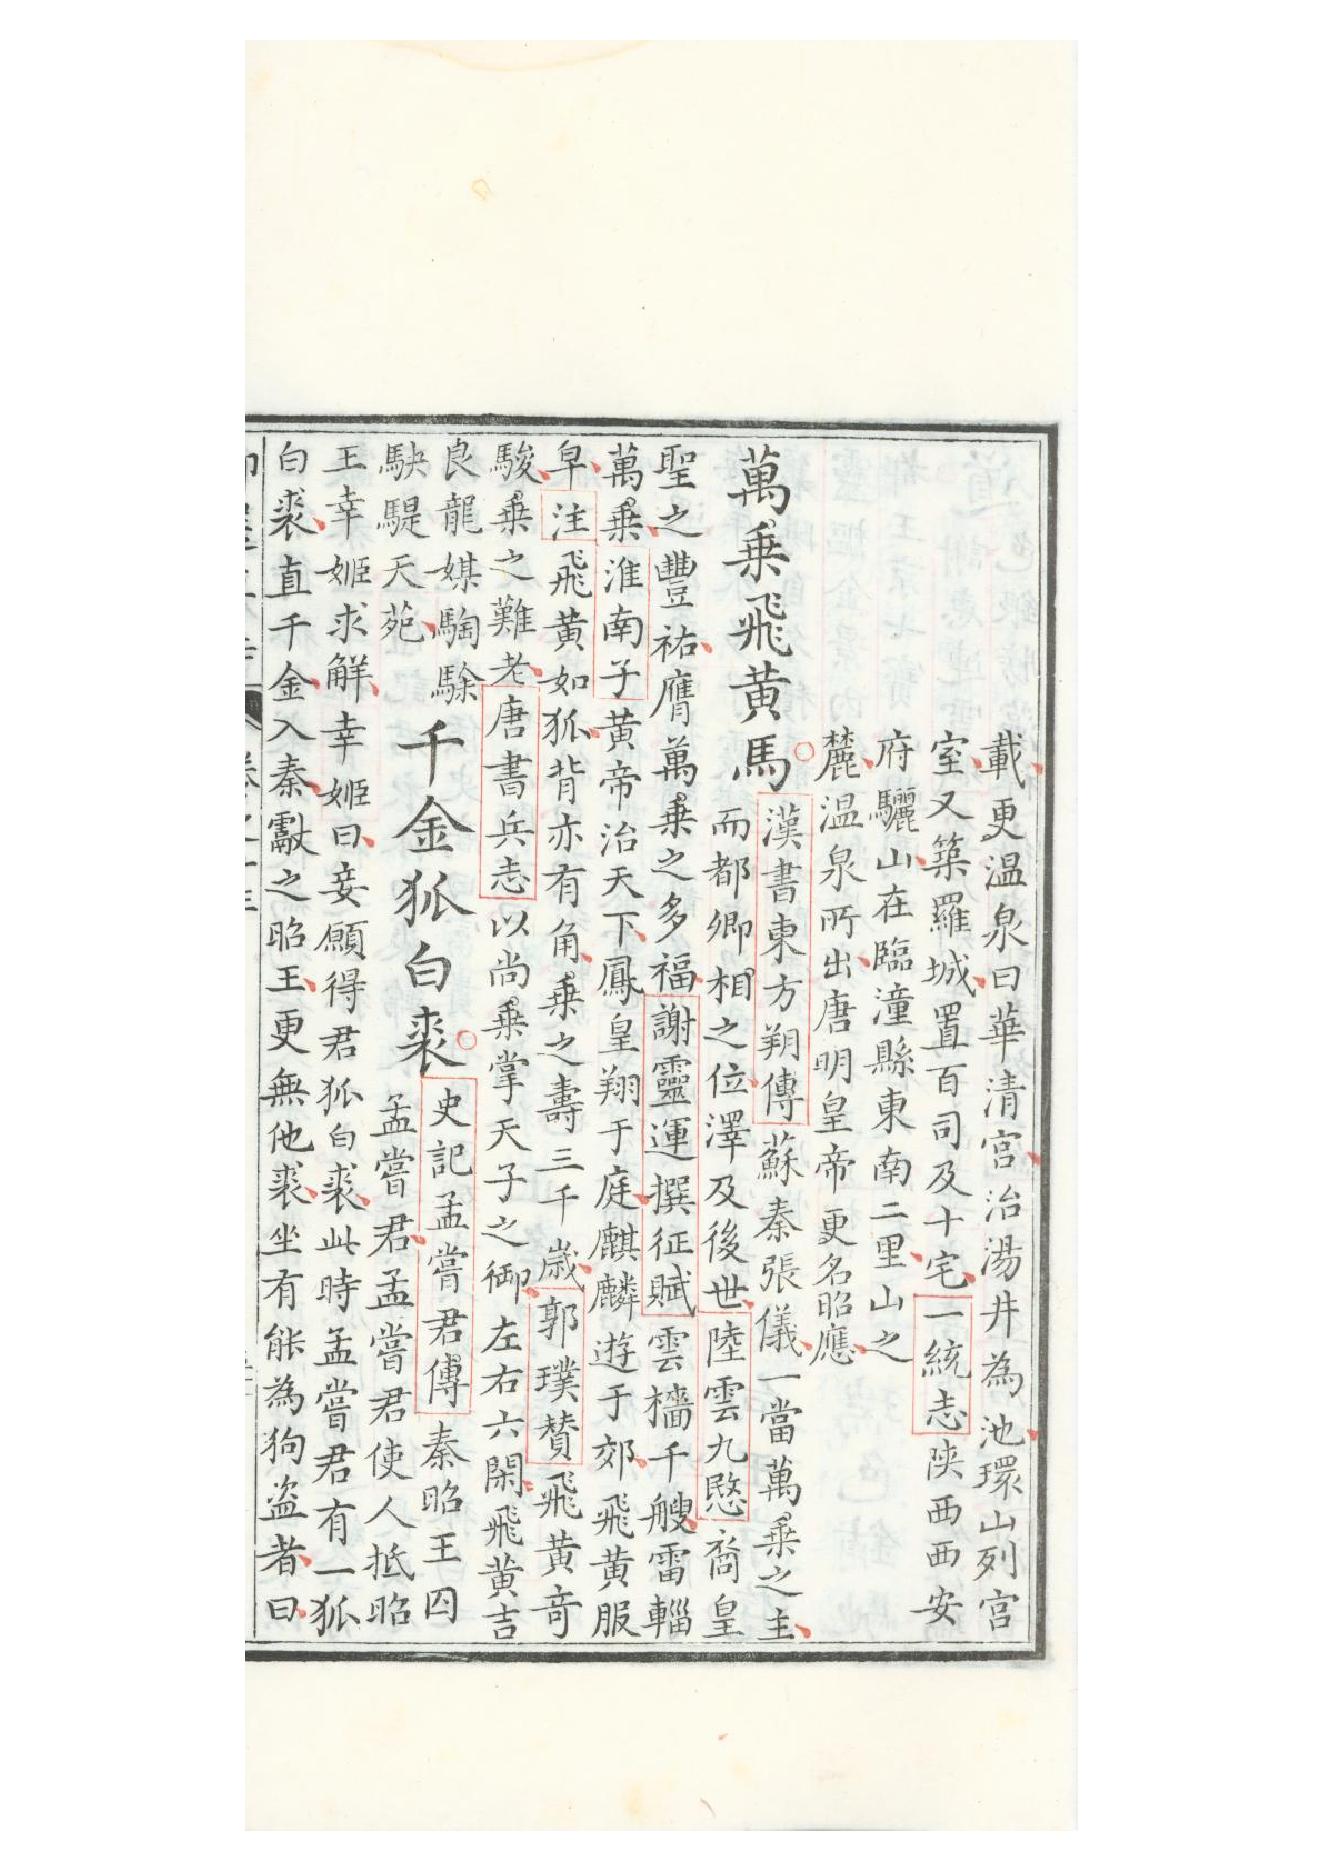 載更溫泉曰華清宮治湯井為池環山列宮
室又築羅城置百司及十宅一統志陝西西安
府驪山在臨潼縣東南二里山之
麓溫泉所出唐明皇帝更名昭應
萬乗飛黃馬
漢書東方朔傳蘇秦張儀一當萬乗之主
而都卿相之位澤及後世陸雲九愍裔皇
聖之豐祐膺萬乗之多福謝靈運撰征賦雲檣千艘雷輜
萬乗淮南子黃帝治天下鳳皇翔于庭麒麟遊于郊飛黃服
皁注飛黃如狐背亦有角乗之壽三千歲郭璞贊飛黃奇
駿乗之難老唐書兵志以尚乗掌天子之御左右六閑飛黃吉
良龍媒騊駼
駃騠天苑
千金狐白裘
史記孟嘗君傳秦昭王囚
孟嘗君孟嘗君使人抵昭
王幸姬求解幸姬曰妾願得君狐白裘此時孟嘗君有一狐
白裘直千金入秦獻之昭王更無他裘坐有能為狗盜者曰